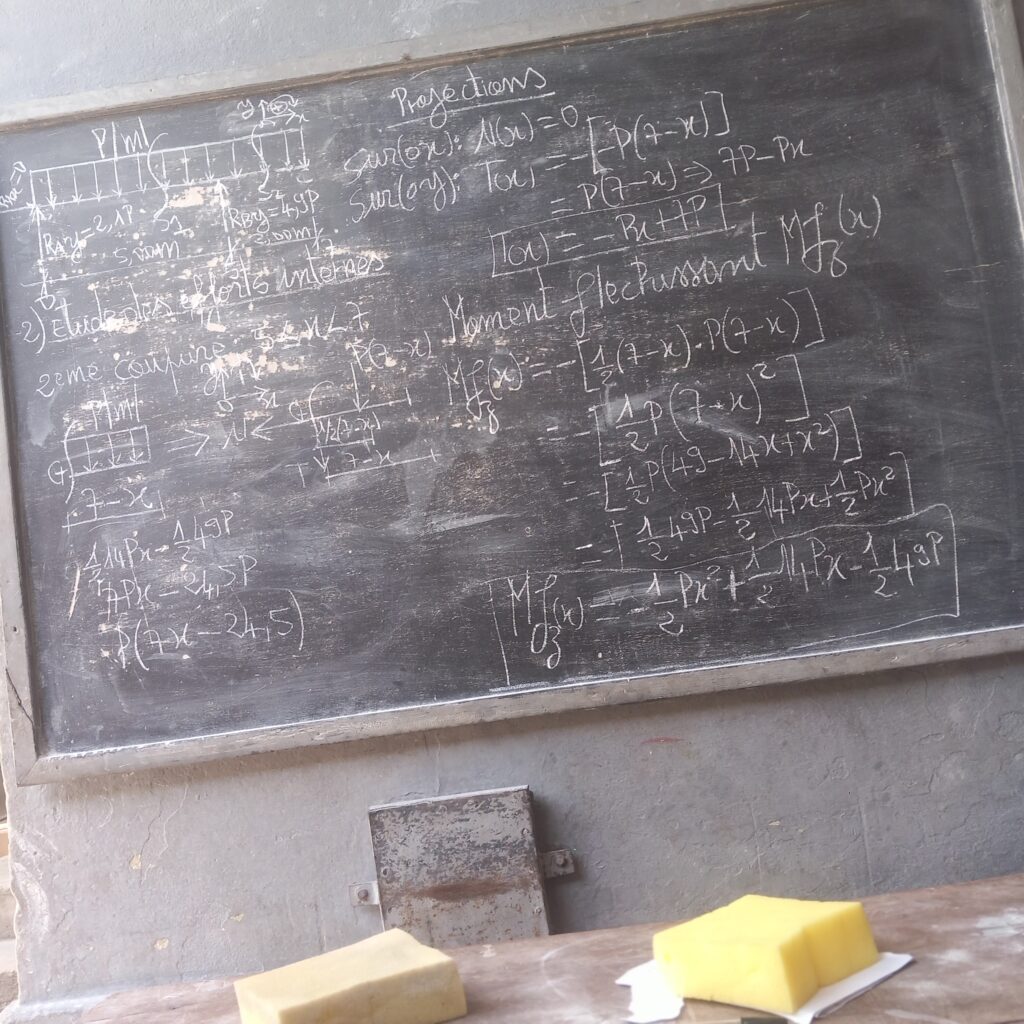 P/ml
y
x
RAy=2,1P S1
RBy=4,9P S2
5,00m
2,00m
2) Etude des efforts internes
2eme coupure 5 ≤ x < 7
P/ml
7-x
⇒
P(7-x)
1/2(7-x)
7-x
1/2 14Px - 1/2 49P
7Px - 24,5P
P(7x - 24,5)
Projections
sur(ox): N(x) = 0
sur(oy): T(x) = -[-P(7-x)]
= P(7-x) ⇒ 7P-Px
T(x) = -Px+7P
Moment flechissant Mfz(x)
Mfz(x) = -[1/2(7-x).P(7-x)]
= -[1/2 P(7-x)²]
= -[1/2 P(49-14x+x²)]
= -[1/2 49P - 1/2 14Px + 1/2 Px²]
Mfz(x) = -1/2 Px² + 1/2 14Px - 1/2 49P